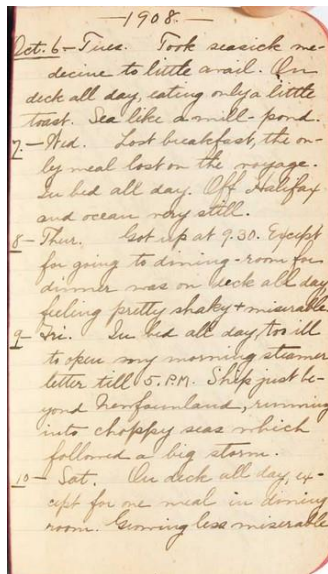 —1908.—
Oct. 6 — Tues. Took seasick me-
decine to little avail. On
deck all day, eating only a little
toast. Sea like a mill-pond.
7 — Wed. Lost breakfast, the on-
ly meal lost on the voyage.
In bed all day. Off Halifax
and ocean very still.
8 — Thur. Got up at 9.30. Except
for going to dining-room for
dinner was on deck all day
feeling pretty shaky + miserable
9 — Fri. In bed all day, too ill
to open my morning steamer
letter till 5 P.M. Ship just be-
yond Newfounland, running
into choppy seas which
followed a big storm.
10 — Sat. On deck all day, ex-
cept for one meal in dining
room. Growing less miserable